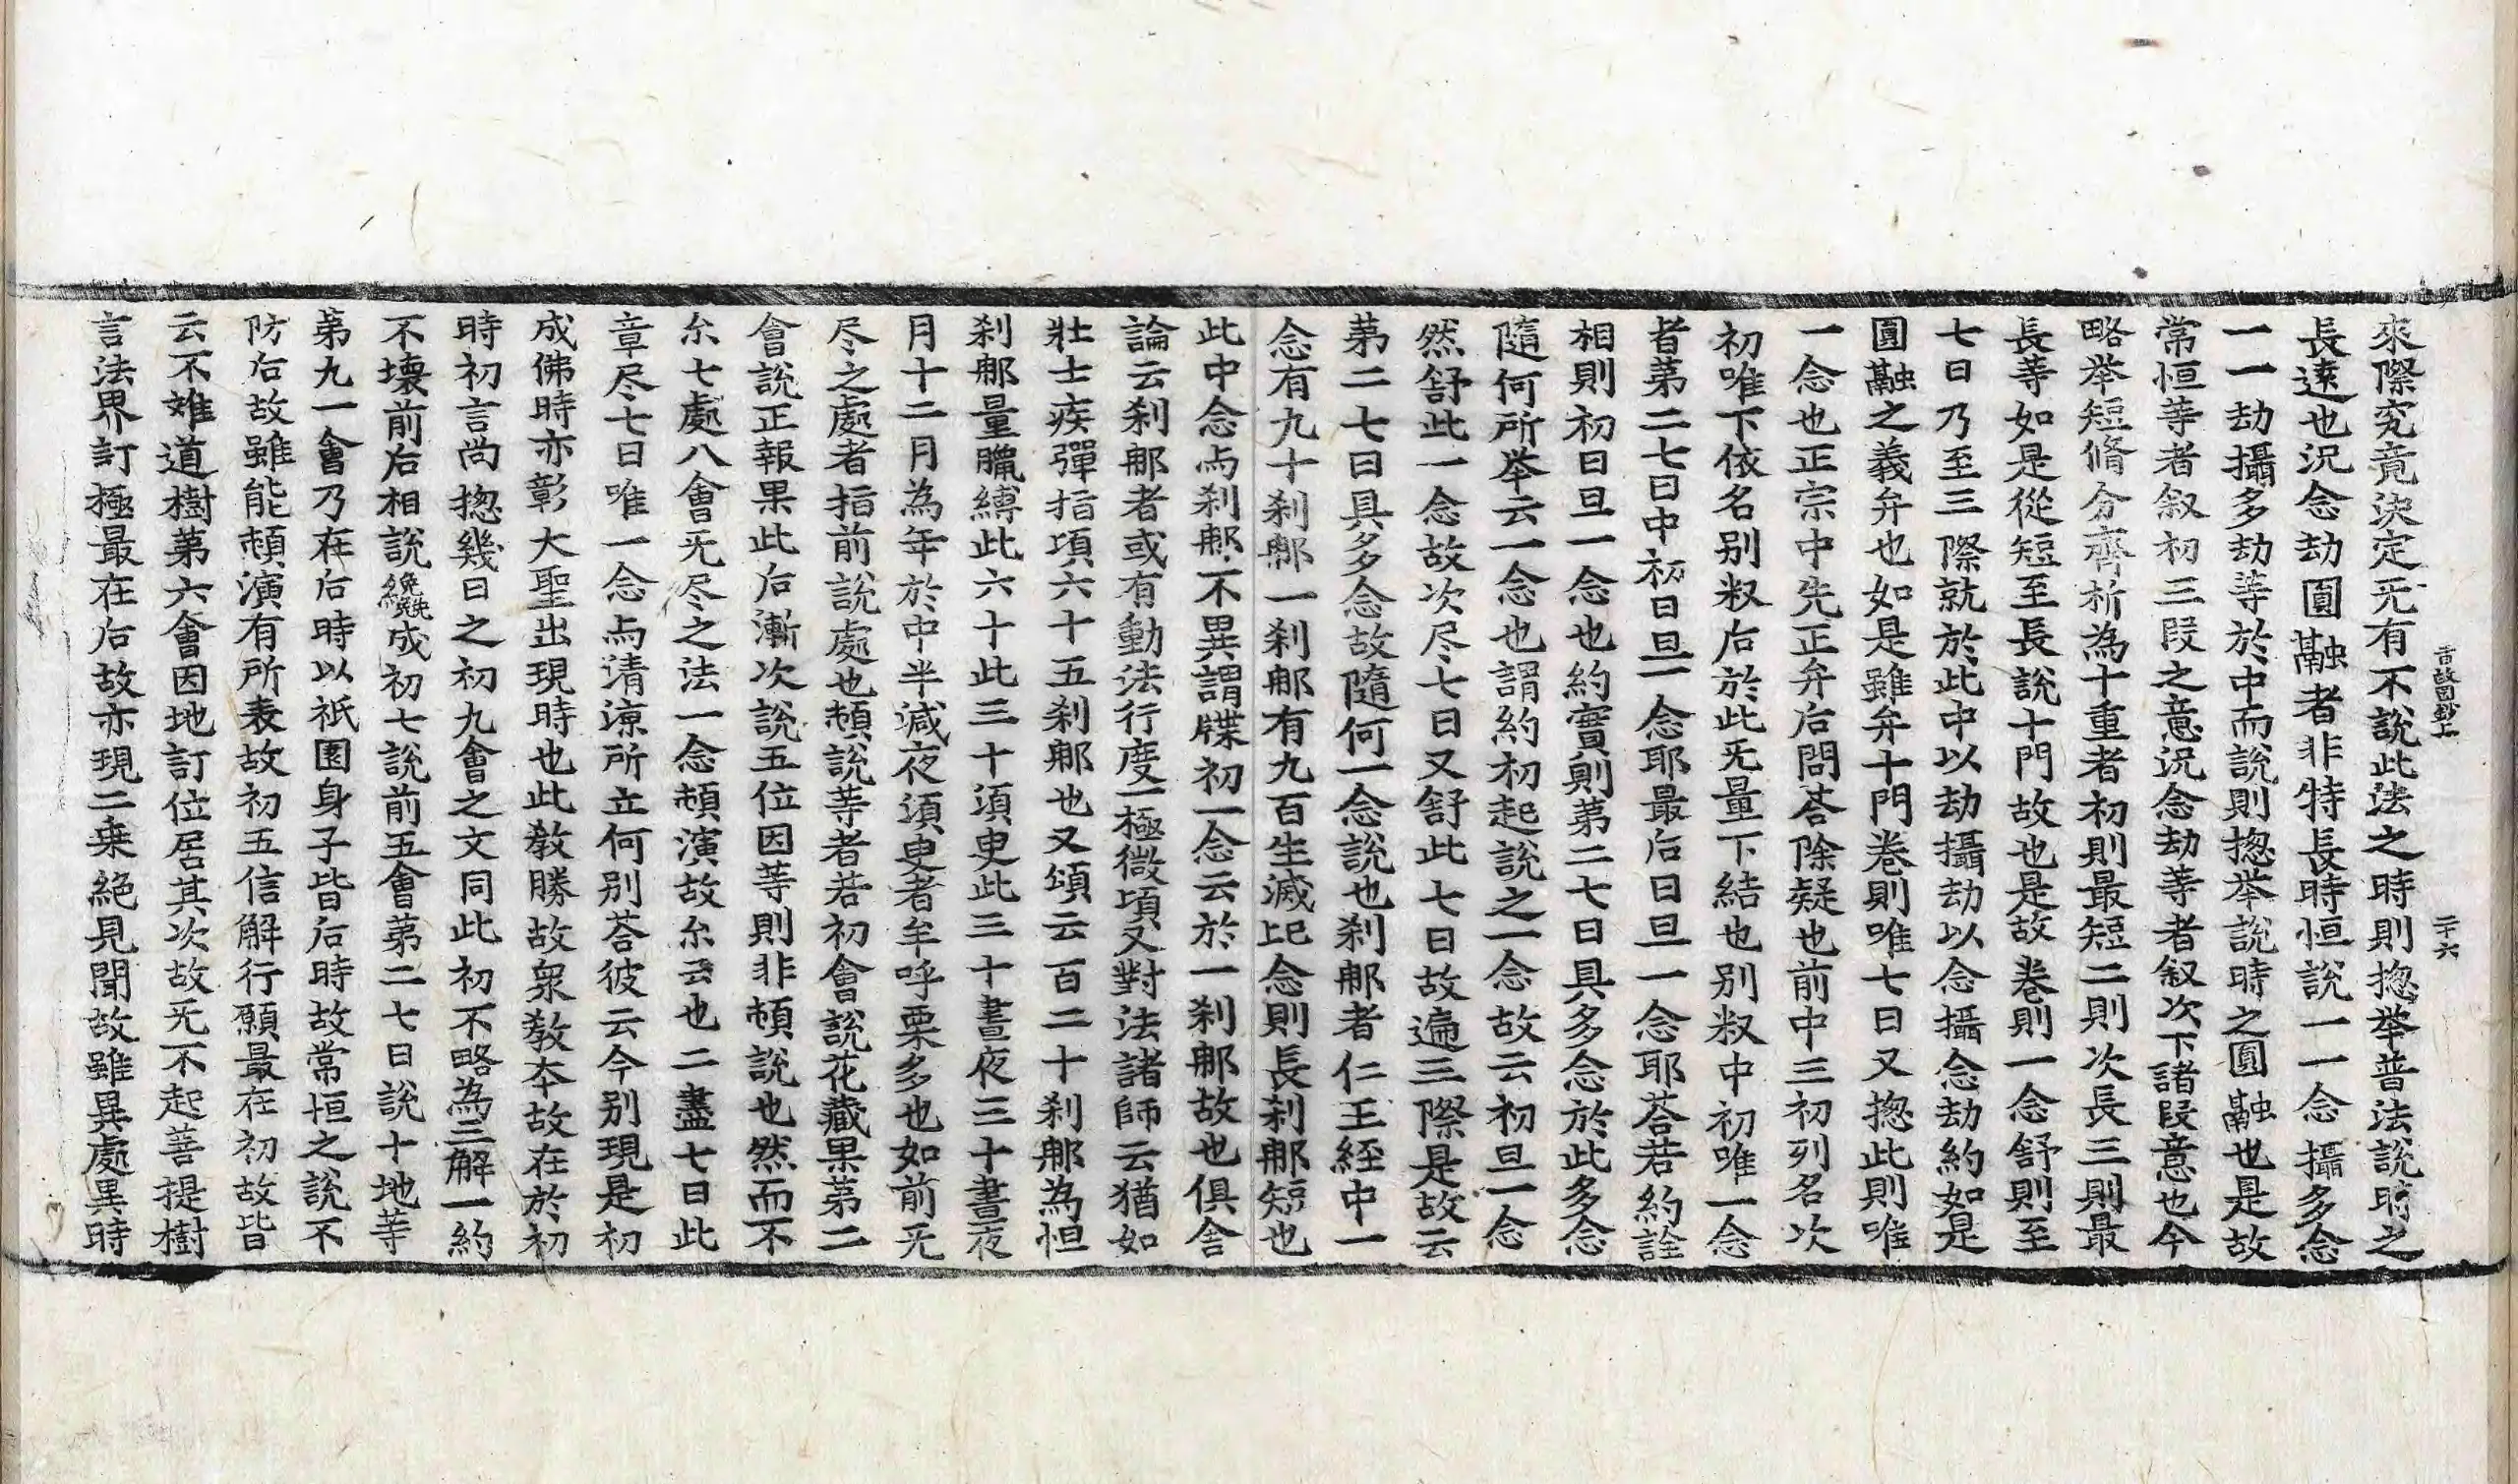 旨故圓鈔上 二十六
來際究竟決定旡有不說此法之時則揔举普法說時之
長遠也況念劫圓融者非特長時恒說一一念攝多念
一一劫攝多劫等於中而說則揔举說時之圓融也是故
常恒等者叙初三段之意況念劫等者叙次下諸段意也今
略举短脩分齊析為十重者初則最短二則次長三則最
長等如是從短至長說十門故也是故卷則一念舒則至
七日乃至三際就於此中以劫攝劫以念攝念劫約如是
圓融之義弁也如是雖弁十門卷則唯七日又揔此則唯
一念也正宗中先正弁后問荅除疑也前中三初列名次
初唯下依名别叙后於此旡量下結也别叙中初唯一念
者第二七日中初日旦一念耶最后日旦一念耶荅若約詮
相則初日旦一念也約實則第二七日具多念於此多念
隨何所举云一念也謂約初起說之一念故云初旦一念
然舒此一念故次尽七日又舒此七日故遍三際是故云
第二七日具多念故隨何一念說也刹那者仁王経中一
念有九十刹那一刹那有九百生滅比念則長刹那短也
此中念与刹那不異謂牒初一念云於一刹那故也俱舍
論云刹那者或有動法行度一極微頃又對法諸師云猶如
壯士疾彈指頃六十五刹那也又頌云百二十刹那為怛
刹那量臘縛此六十此三十湏臾此三十晝夜三十晝夜
月十二月為年於中半減夜湏臾者牟呼栗多也如前旡
尽之處者指前說處也頓說等者若初會說花藏果第二
會說正報果此后漸次說五位因等則非頓說也然而不
尒七處八會旡尽之法一念頓演故尒云也二盡七日此
章尽七日唯一念与清涼所立何别荅彼云今别現是初
成佛時亦彰大聖出現時也此敎勝故衆敎夲故在於初
時初言尚揔幾日之初九會之文同此初不略為三解一約
不壞前后相說纔成初七說前五會第二七日說十地等
第九一會乃在后時以祇園身子皆后時故常恒之說不
防后故雖能頓演有所表故初五信解行願最在初故皆
云不離道樹第六會因地訂位居其次故旡不起菩提樹
言法界訂極最在后故亦現二乗絶見聞故雖異處異時